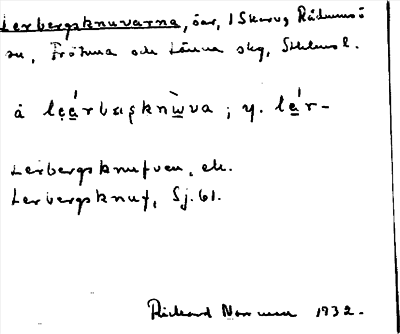 Lerbergsknuvarna, öar, i Skarv, Rådmansö
sn, Frötuna och Länna skg, Sthlms l.
å lęá̱rbærgsknẁ̱va ; y. lá̱r-
Lerbergsknufven, ek.
Lerbergsknuf, Sj. 61.
Rickard Norrman 1932.